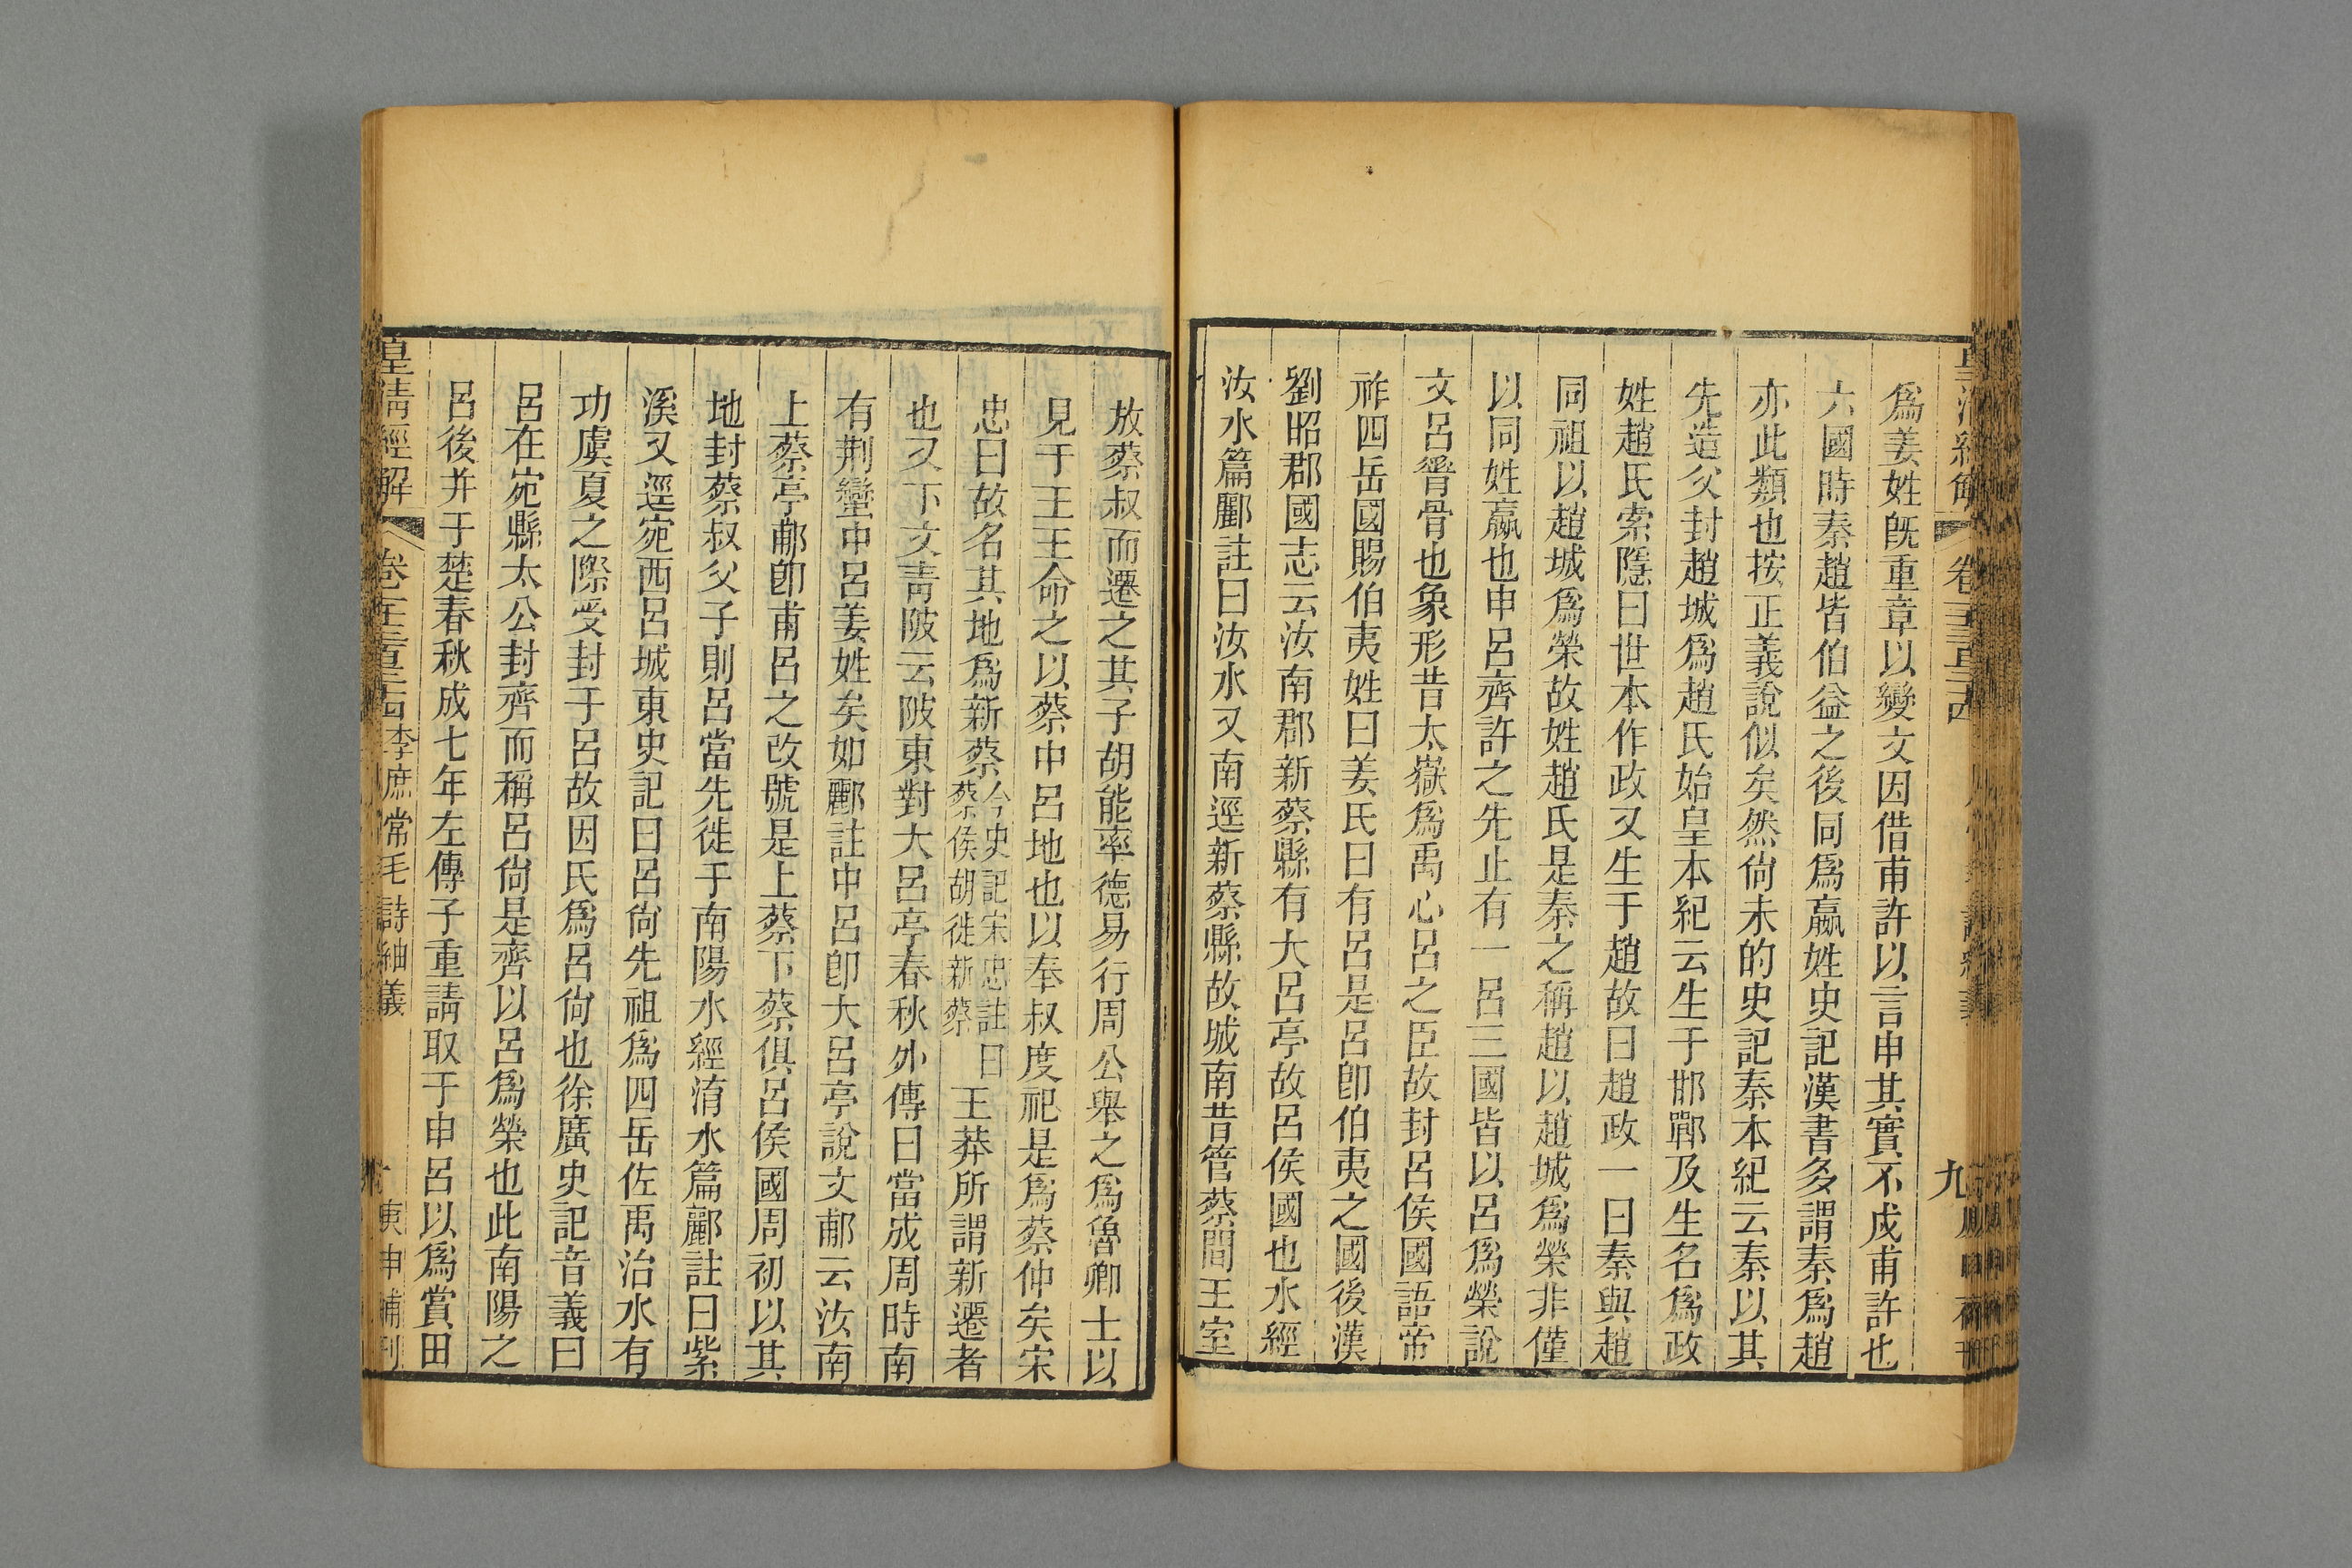 爲姜姓旣重章以變文因借甫許以言申其實不戍甫許也
六國時秦趙皆伯益之後同爲嬴姓史記漢書多謂秦爲趙
亦此類也按正義說似矣然尙未的史記秦本紀云秦以其
先造父封趙城爲趙氏始皇本紀云生于邯鄲及生名爲政
姓趙氏索隱曰世本作政又生于趙故曰趙政一曰秦與趙
同祖以趙城爲榮故姓趙氏是秦之稱趙以趙城爲榮非僅
以同姓嬴也申呂齊許之先止有一呂三國皆以呂爲榮說
文呂脊骨也象形昔太嶽爲禹心呂之臣故封呂侯國語帝
祚四岳國賜伯夷姓曰姜氏曰有呂是呂卽伯夷之國後漢
劉昭郡國志云汝南郡新蔡縣有大呂亭故呂侯國也水經
汝水篇酈註曰汝水又南逕新蔡縣故城南昔管蔡間王室
放蔡叔而遷之其子胡能率德易行周公舉之爲魯卿士以
見于王王命之以蔡申呂地也以奉叔度祀是爲蔡仲矣宋
忠曰故名其地爲新蔡今史記宋忠註曰蔡侯胡徙新蔡王莽所謂新遷者
也又下文靑陂云陂東對大呂亭春秋外傳曰當成周時南
有荆蠻申呂姜姓矣如酈註申呂卽大呂亭說文鄦云汝南
上蔡亭鄦卽甫呂之改號是上蔡下蔡俱呂侯國周初以其
地封蔡叔父子則呂當先徙于南陽水經淯水篇酈註曰紫
溪又逕宛西呂城東史記曰呂尙先祖爲四岳佐禹治水有
功虞夏之際受封于呂故因氏爲呂尙也徐廣史記音義曰
呂在宛縣太公封齊而稱呂尙是齊以呂爲榮也此南陽之
呂後并于楚春秋成七年左傳子重請取于申呂以爲賞田
皇淸經解 卷 李庶常毛詩紬義 庚申補刊